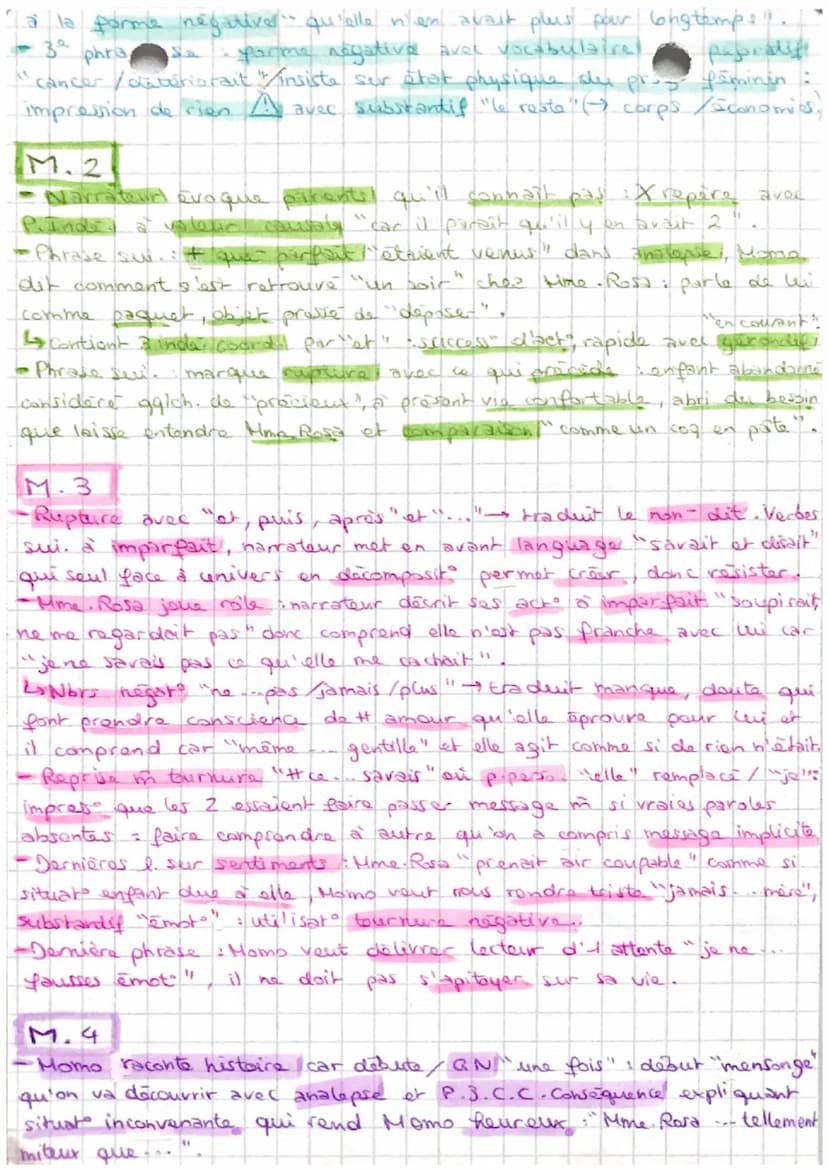 à la forme négative "qu'elle n'en avait plus pour longtemps".
- 3e phra se : forme négative avec vocabulaire péjoratif
"cancer / détériorait" insiste sur état physique du féminin :
impression de rien ⚠ avec substantif "le reste" (→ corps / économies)
M.2
- Narrateur évoque parents qu'il connaît pas : X repère avec
P. Indé à valeur causale "car il paraît qu'il y en avait 2".
- Phrase sui. : + que parfait "étaient venus" dans analepse, Momo
dit comment s'est retrouvé "un soir" chez Mme. Rosa : parle de lui
comme paquet, objet pressé de "déposer".
"en courant".
↳ Contient 3 indé coord par "et" : success° d'act°, rapide avec gérondif
- Phrase sui. : marque rupture avec ce qui précède : enfant abandonné
considéré qqlch. de "précieux", à présent vie confortable, abri du besoin
que laisse entendre Mme. Rosa et comparaison "comme un coq en pâte".
M.3
- Rupture avec "et, puis, après" et "..." → traduit le non-dit. Verbes
sui. à imparfait, narrateur met en avant language "savait et disait"
qui seul face à univers en décomposit° permet créer, donc résister.
- Mme. Rosa joue rôle : narrateur décrit ses act° à imparfait "soupirait,
ne me regardait pas" donc comprend elle n'est pas franche avec lui car
"je ne savais pas ce qu'elle me cachait".
↳ Nbrs négat° "ne...pas/jamais/plus" → traduit manque, doute qui
font prendre conscience de tt amour qu'elle éprouve pour lui et
il comprend car "même ... gentille" et elle agit comme si de rien n'était
- Reprise m̂ tournure "tt ce... savais" où p. perso. "elle" remplacé / "je" :
impress° que les 2 essaient faire passer message m̂ si vraies paroles
absentes = faire comprendre à autre qu'on a compris message implicite
- Dernières l. sur sentiments : Mme. Rosa "prenait air coupable" comme si
situat° enfant due à elle, Momo veut nous rendre triste "jamais... mère",
substantif "émot°" : utilisat° tournure négative.
- Dernière phrase : Momo veut délivrer lecteur d'1 attente "je ne...
fausses émot°", il ne doit pas s'apitoyer sur sa vie.
M.4
- Momo raconte histoire car débute / G.N "une fois" : début "mensonge"
qu'on va découvrir avec analepse et P.S.C.C. Conséquence expliquant
situat° inconvenante qui rend Momo heureux : "Mme. Rosa ... tellement
miteux que...".